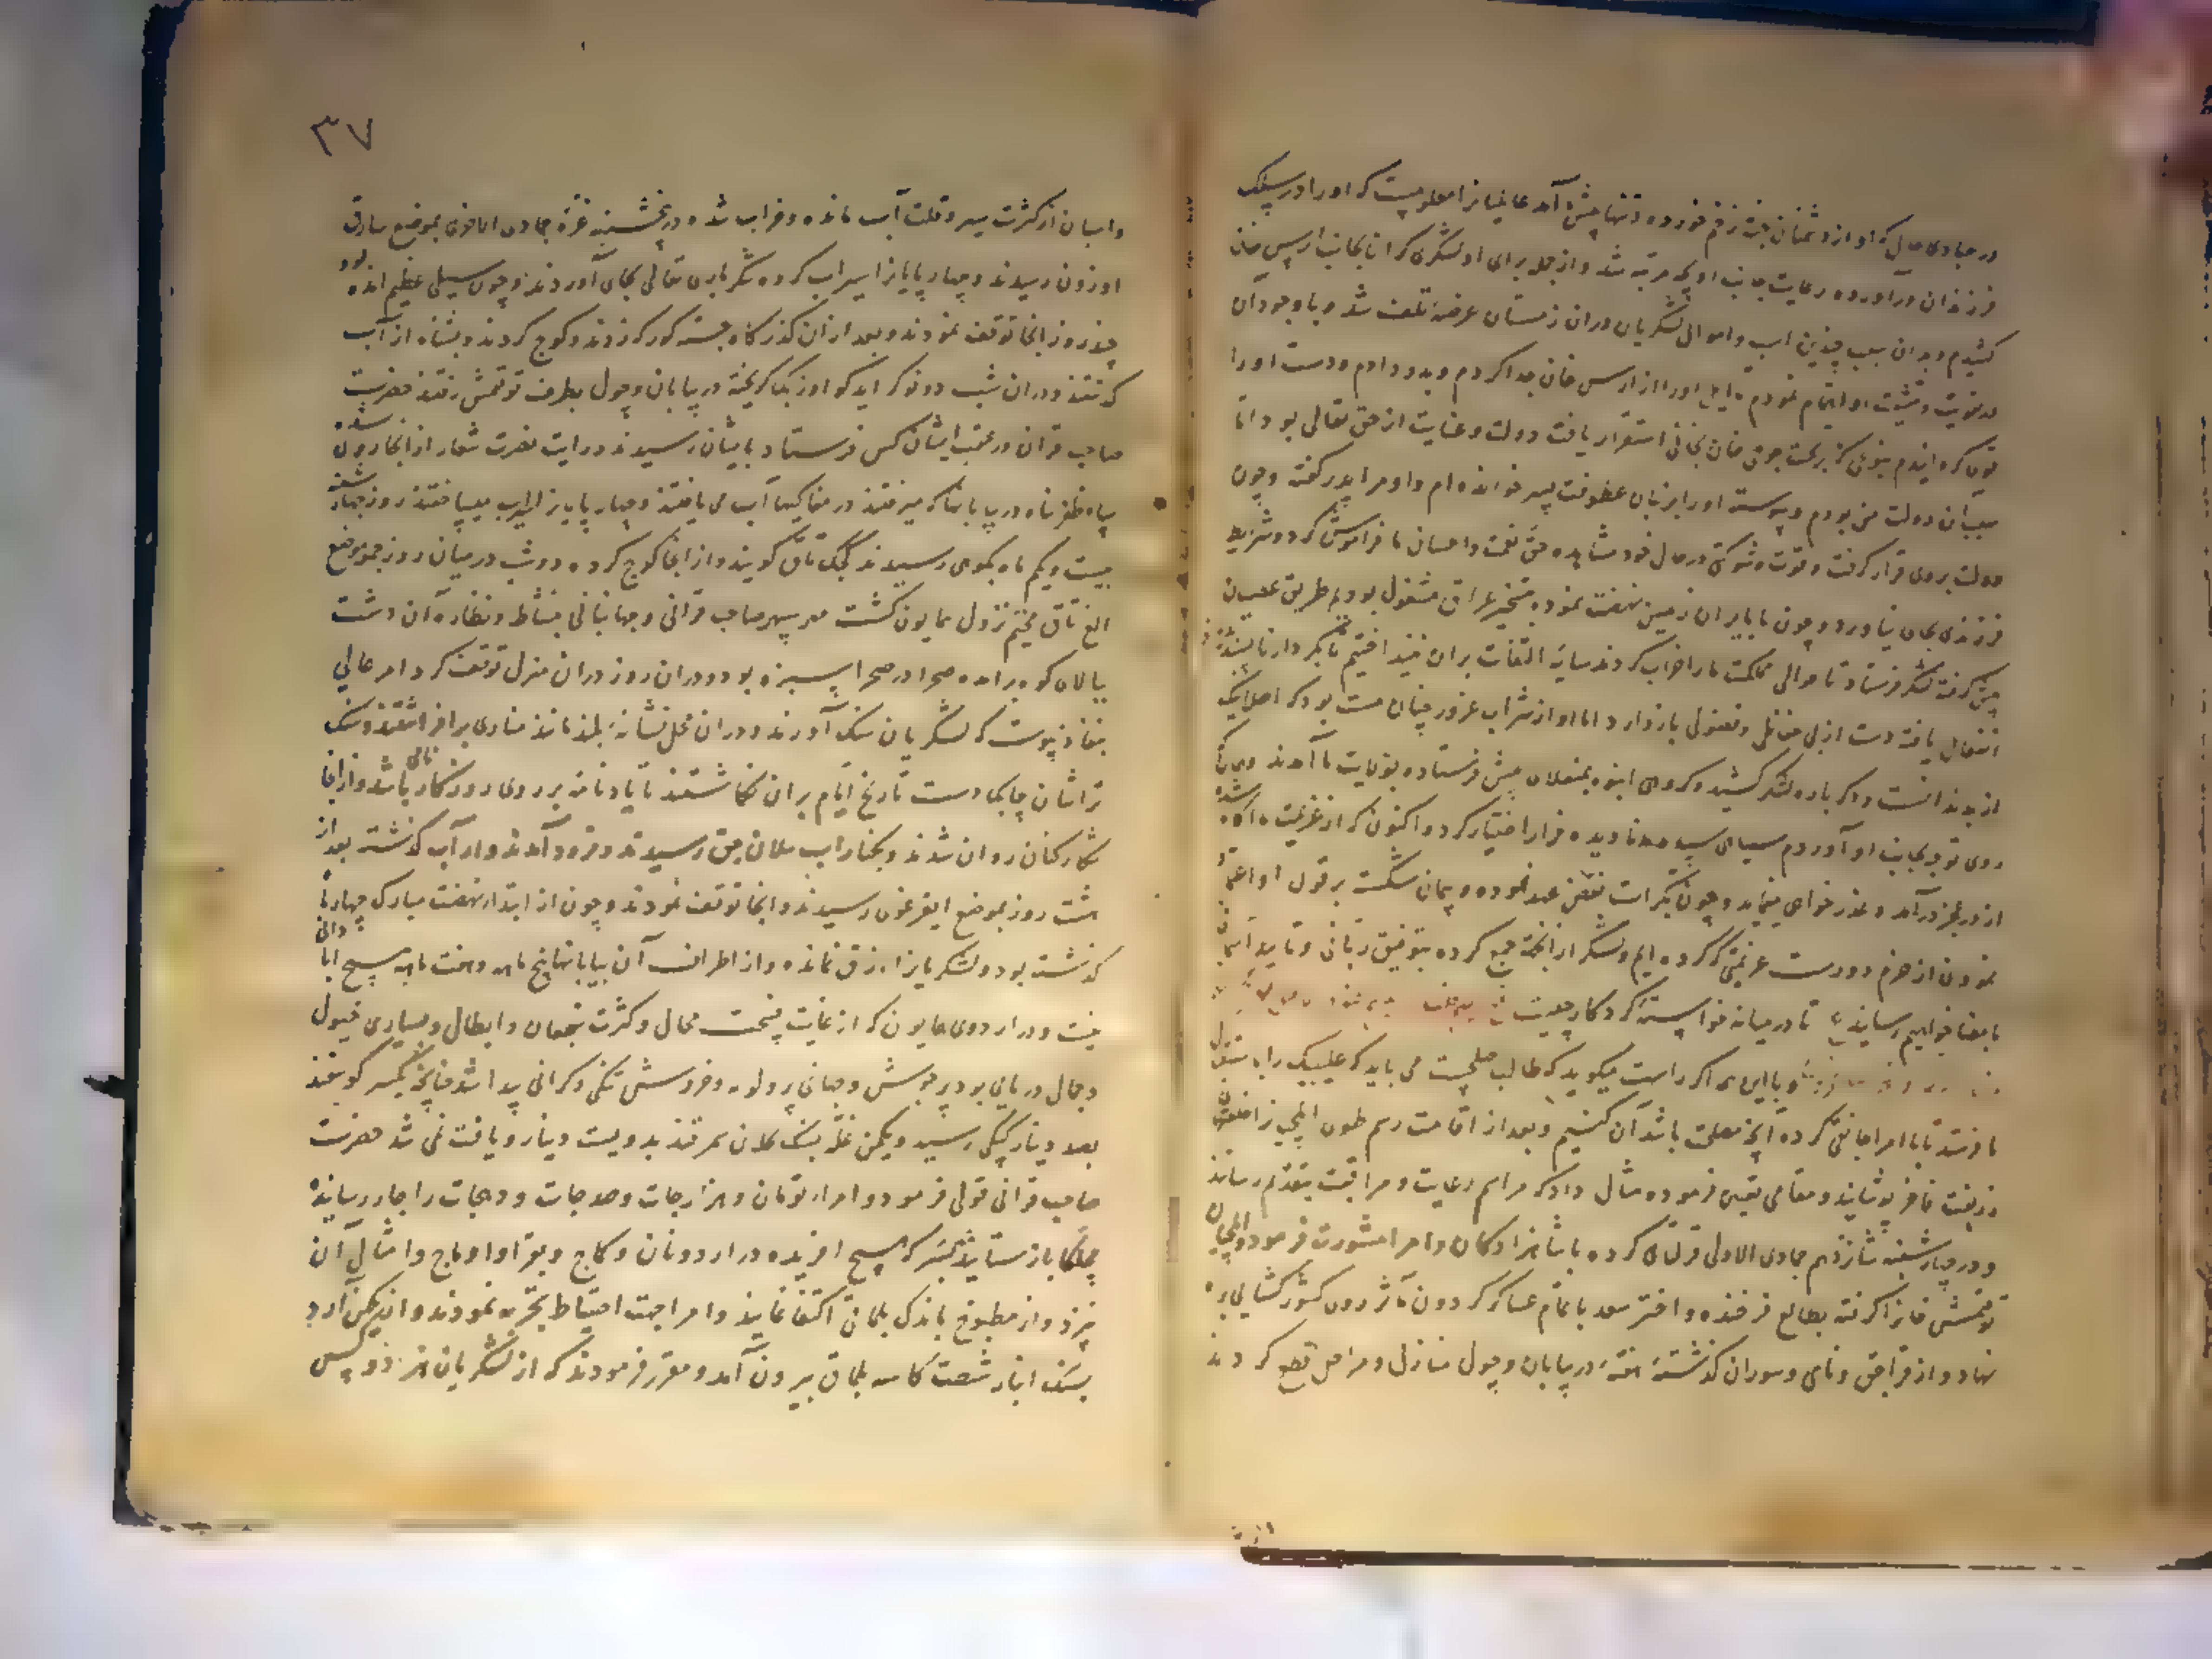 در مبادی حال که او از دشمنان جسته زخم خورده و تنها پیش ما آمد عالمیانرا معلومست که اورا در سلک
فرزندان درآورده رعایت جانب او بچه مرتبه شد و از جمله برای او لشکری کران بجانب ارس خان
کشیدم و بدان سبب چندین اسب و اموال لشکریان دران زمستان عرضه تلف شد و با وجود آن
در تقویت و تمشیت او اهتمام نمودم و ایل اورا از ارس خان جدا کردم و بدو دادم و دست اورا
قوی کرد ایندم بنوعی که بر تخت جوجی خان بخانی استقرار یافت دولت و عنایت از حق تعالی بود اما
سبب آن دولت من بودم و پیوسته اورا بزبان عطوفت پسر خوانده ام و او مرا پدر گفته و چون
دولت بروی قرار گرفت و قوت و شوکتی در حال خود مشاهده حق نعمت و احسان ما فراموش کرد و شرایط
فرزندی بجای نیاورد و چون ما بایران زمین نهضت نموده بتسخیر عراق مشغول بودیم طریق عصیان
پیش گرفته لشکر فرستاد تا حوالی مملکت مارا خراب کردند سایه التفات بران نینداختیم تا مگر از کردار ناپسند
انفعال یافته دست از بی حفاظی و فضولی بازدارد اما او از شراب غرور چنان مست بود که اصلا نیک
از بد ندانست و دگر باره لشکر کشید و گروهی انبوه بمنقلای پیش فرستاده بولایت ما آمدند و چون ما
روی توجه بجانب او آوردیم سیاهی سپاه ما نادیده فرار اختیار کرد و اکنون که از عزیمت ما آگاه شده
از در عجز درآمد و عذر خواهی مینماید و چون بکرات نقض عهد نموده و پیمان شکست بر قول او اعتماد
نمودن از حزم دورست عزیمتی که کرده ایم و لشکر از انجهة جمع کرده بتوفیق ربانی و تایید آسمانی
بامضا خواهیم رسانید تا درمیانه خواسته کردگار چیست
و با این همه اگر راست میگوید که طالب صلحست می باید که علی بیک را باستقبال
ما فرستد تا با امرا جانقی کرده آنچه مصلحت باشد آن کنیم و بعد از اقامت رسم طوی ایلچیانرا خلعتهای
زربفت فاخر پوشانید و مقامی تعیین فرموده مثال داد که مراسم رعایت و مراقبت بتقدیم رسانند
و در چهارشنبه شانزدهم جمادی الاولی قورلتای کرده با شاهزادگان و امرا مشورت فرمود و ایلچیان
توقتمش خانرا گرفته بطالع فرخنده و اختر سعد با تمام عساکر گردون مآثر روی کشورگشایی براه
نهاد و از قراجق و یاسی و صوران گذشته سه هفته در بیابان و چول منازل و مراحل قطع کردند
۳۷
و اسبان از کثرت سیر و قلت آب مانده و خراب شده در پنجشنبه غره جمادی الاخری بموضع ساریق
اوزون رسیدند و چهارپایانرا سیراب کرده شکر باری تعالی بجای آوردند و چون سیلی عظیم آمده بود
چند روز انجا توقف نمودند و بعد ازان گذرگاه جسته کورک زدند و کوچ کردند و بشناه از آب
گذشتند و دران شب دو نوکر ایدکو اوزبک گریخته در بیابان و چول بطرف توقتمش رفتند حضرت
صاحب قران در عقب ایشان کس فرستاد بایشان نرسیدند و رایت نصرت شعار از انجا روان شده
سپاه ظفر پناه در بیابانها که میرفتند در مغاکیها آب می یافتند و چهارپایانرا سیراب میساختند روز چهارشنبه
بیست و یکم ماه بکوهی رسیدند که کجک تاق گویند و از انجا کوچ کرده دو شب درمیان روز جمعه موضع
الغ تاق مخیم نزول همایون گشت مهر سپهر صاحب قرانی و جهانبانی بنشاط و نظاره آن دشت
ببالای کوه برآمده صحرا در صحرا سبزه بود و دران روز دران منزل توقف کرد امر عالی
بنفاذ پیوست که لشکریان سنگ آورند و دران محل نشانه بلند مانند مناری برافراشتند و سنگ
تراشان چابک دست تاریخ ایام بران نگاشتند تا یادنامه بر روی روزگار باقی باشد و از انجا
شکارکنان روان شدند و بکنار آب یلانجق رسیدند و فرود آمدند و از آب گذشته بعد از
هشت روز بموضع اتقرغوی رسیدند و انجا توقف نمودند و چون از ابتدا نهضت مبارک چهار ماه
گذشته بود و لشکریانرا رزق نمانده و از اطراف آن بیابانها پنج ماهه و هفت ماهه هیچ آبادانی
نیست و در اردوی همایون که از غایت فسحت مجال و کثرت شجعان و ابطال و بسیاری خیول
و جمال دریایی بود پر جوش و جهانی پر ولوله و خروش تنگی و گرانی پیدا شد چنانچه یکسر گوسفند
بصد دینار کپکی رسید و یکمن غله بسنگ کلان سمرقند بدویست دینار و یافت نمی شد حضرت
صاحب قرانی قولی فرمود و امرا تومان و هزارجات و صدجات و دهجات را جار رسانیده
موچلکا بازستانیدند که هیچ آفریده در اردو نان و کماج و بغرا و اوماج و امثال آن
نپزد و از مطبوخ باندک بلماق اکتفا نمایند و امرا جهت احتیاط تجربه نمودند و از یکمن آرد
بسنگ انبار شصت کاسه بلماق بیرون آمد و مقرر فرمودند که از لشکریان هر نفر و کس